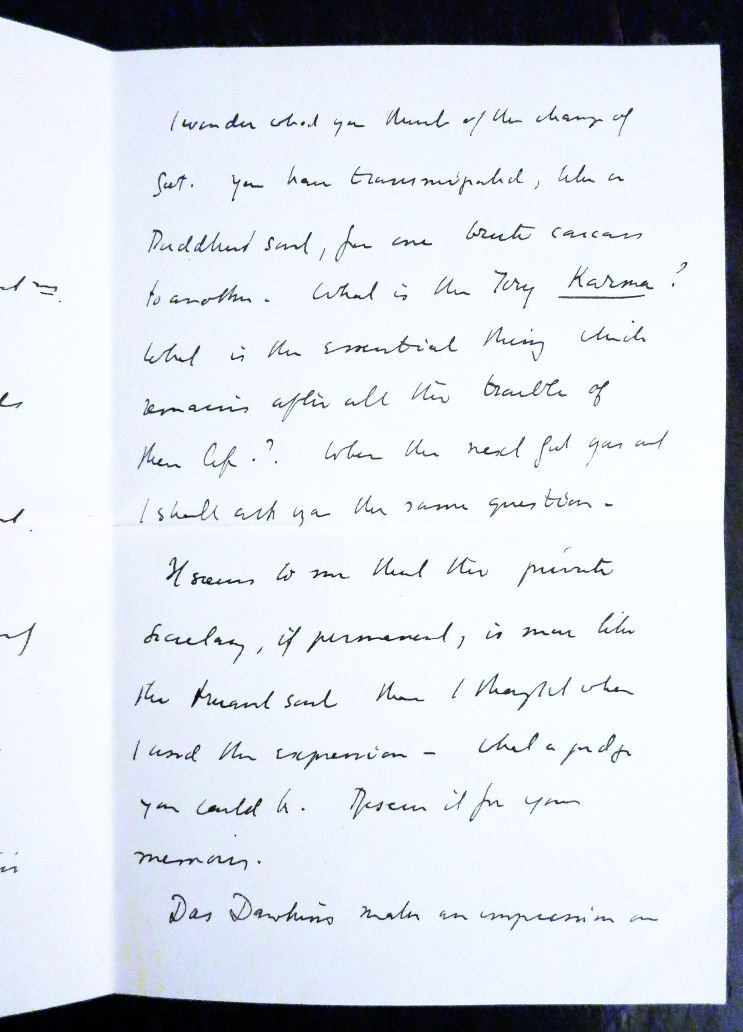 I wonder what you think of the change of
Govt. You have transmigrated, like a
Buddhist soul, from one brute carcass
to another. What is the Tory Karma?
What is the essential thing which
remains after all the trouble of
their life?. When the next govt goes out
I shall ask you the same question.
It seems to me that the private
Secretary, if permanent, is more like
the truant soul than I thought when
I used the expression – what a
you could be. it for your
memoirs.
Das Dawkins makes an impression on